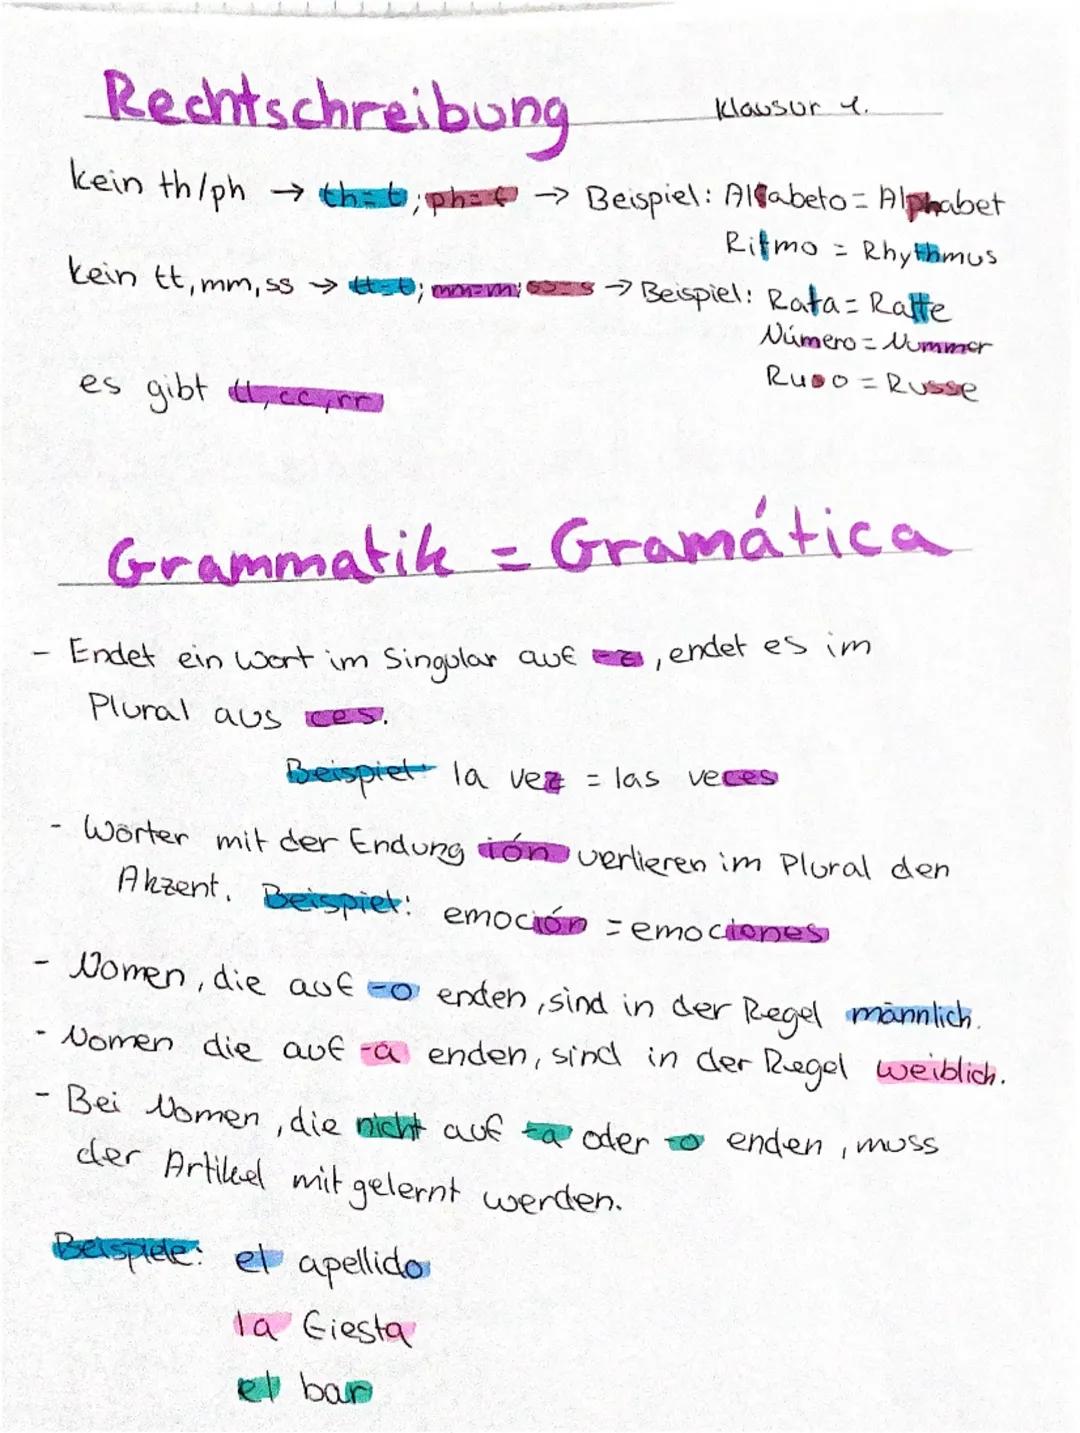 Rechtschreibung Klausur 1.
kein th/ph → th=t; ph=f → Beispiel: Alfabeto = Alphabet
Ritmo = Rhythmus
kein tt, mm, ss → tt=t; mm=m; ss=s → Beispiel: Rata = Ratte
Número = Nummer
Ruso = Russe
es gibt ll, cc, rr
Grammatik = Gramática
- Endet ein Wort im Singular auf -z, endet es im
Plural aus ces.
Beispiel: la vez = las veces
- Wörter mit der Endung ión verlieren im Plural den
Akzent. Beispiel: emoción = emociones
- Nomen, die auf -o enden, sind in der Regel männlich.
- Nomen die auf -a enden, sind in der Regel weiblich.
- Bei Nomen, die nicht auf -a oder -o enden, muss
der Artikel mit gelernt werden.
Beispiele: el apellido
la fiesta
el bar